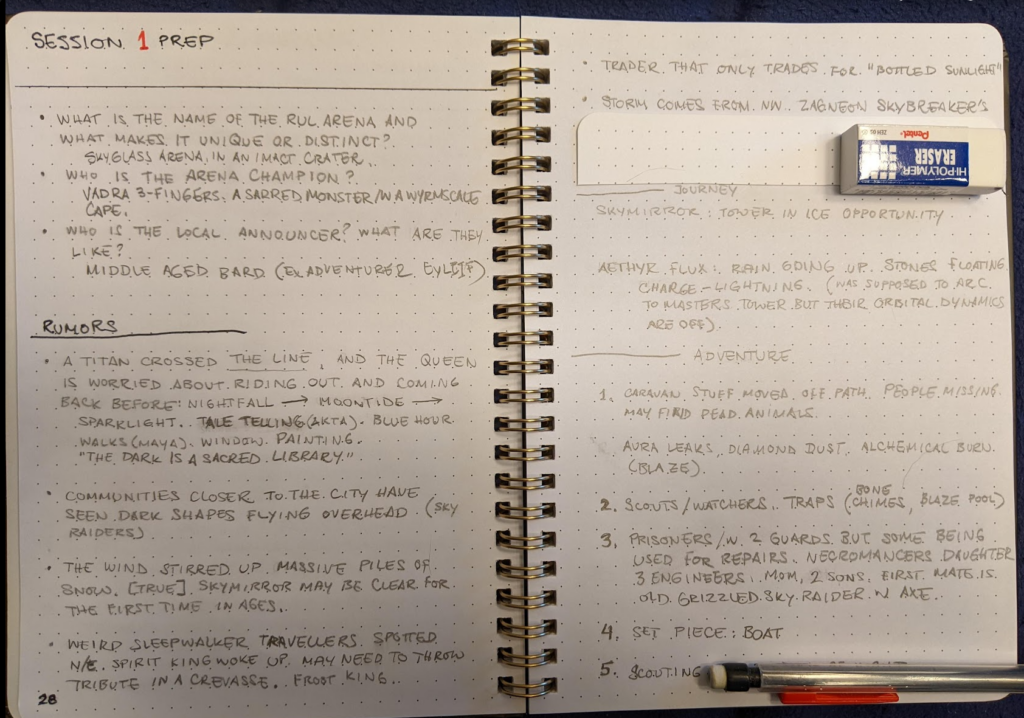 SESSION 1 PREP
• WHAT IS THE NAME OF THE RUL ARENA AND
WHAT MAKES IT UNIQUE OR DISTINCT?
SKYGLASS ARENA, IN AN IMACT CRATER.
• WHO IS THE ARENA CHAMPION?
VADRA 3-FINGERS. A SARRED MONSTER/W A WYRMSCALE
CAPE.
• WHO IS THE LOCAL ANNOUNCER? WHAT ARE THEY
LIKE?
MIDDLE AGED BARD (EX ADVENTURER
RUMORS
• A TITAN CROSSED THE LINE, AND THE QUEEN
IS WORRIED ABOUT RIDING OUT AND COMING
BACK BEFORE: NIGHTFALL → MOONTIDE →
SPARKLIGHT. TALE TELLING (AKTA). BLUE HOUR
WALKS (MAYA). WINDOW PAINTING.
"THE DARK IS A SACRED LIBRARY."
• COMMUNITIES CLOSER TO THE CITY HAVE
SEEN DARK SHAPES FLYING OVERHEAD. (SKY
RAIDERS)
• THE WIND STIRRED UP MASSIVE PILES OF
SNOW. [TRUE] SKYMIRROR MAY BE CLEAR FOR
THE FIRST TIME IN AGES.
• WEIRD SLEEPWALKER TRAVELLERS SPOTTED
N/E. SPIRIT KING WOKE UP. MAY NEED TO THROW
TRIBUTE IN A CREVASSE. FROST KING.
28
• TRADER THAT ONLY TRADES FOR "BOTTLED SUNLIGHT"
• STORM COMES FROM NW. ZAGNEON SKYBREAKER'S
Pentel
HI-POLYMER
ERASER
JOURNEY
SKYMIRROR: TOWER IN ICE OPPORTUNITY.
AETHYR FLUX: RAIN GOING UP. STONES FLOATING
CHARGE-LIGHTNING. (WAS SUPPOSED TO ARC
TO MASTERS TOWER BUT THEIR ORBITAL DYNAMICS
ARE OFF).
ADVENTURE
1. CARAVAN STUFF MOVED OFF PATH. PEOPLE MISSING.
MAY FIND DEAD ANIMALS.
AURA LEAKS, DIAMOND DUST, ALCHEMICAL BURN.
(BLAZE)
2. SCOUTS/WATCHERS. TRAPS (BONE CHIMES, BLAZE POOL)
3. PRISONERS/W. 2 GUARDS. BUT SOME BEING
USED FOR REPAIRS. NECROMANCERS DAUGHTER
3 ENGINEERS. MOM, 2 SONS. FIRST MATE IS
OLD GRIZZLED SKY RAIDER N AXE.
4. SET PIECE: BOAT
5. SCOUTING